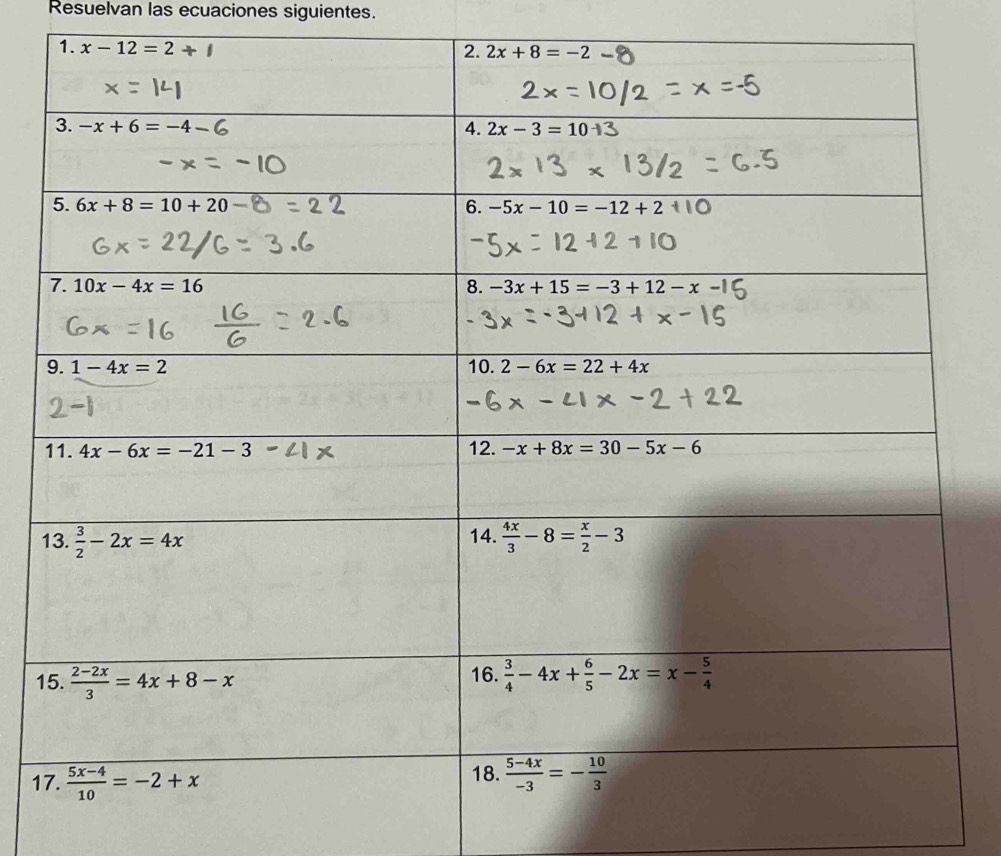 Resuelvan las ecuaciones siguientes.
1. x − 12 = 2 + 1
x = 14
2. 2x + 8 = −2 −8
2x = 10/2 = x = -5
3. −x + 6 = −4 − 6
-x = -10
4. 2x − 3 = 10 +3
2x 13 x 13/2 = 6.5
5. 6x + 8 = 10 + 20 − 8 = 22
6x = 22/6 = 3.6
6. −5x − 10 = −12 + 2 +10
-5x = 12 + 2 + 10
7. 10x − 4x = 16
6x = 16 16/6 = 2.6
8. −3x + 15 = −3 + 12 − x −15
-3x = -3+12 + x - 15
9. 1 − 4x = 2
2-1
10. 2 − 6x = 22 + 4x
-6x - 4x - 2 + 22
11. 4x − 6x = −21 − 3 − 4x
12. −x + 8x = 30 − 5x − 6
13. 3/2 − 2x = 4x
14. 4x/3 − 8 = x/2 − 3
15. 2−2x/3 = 4x + 8 − x
16. 3/4 − 4x + 6/5 − 2x = x − 5/4
17. 5x−4/10 = −2 + x
18. 5−4x/−3 = −10/3